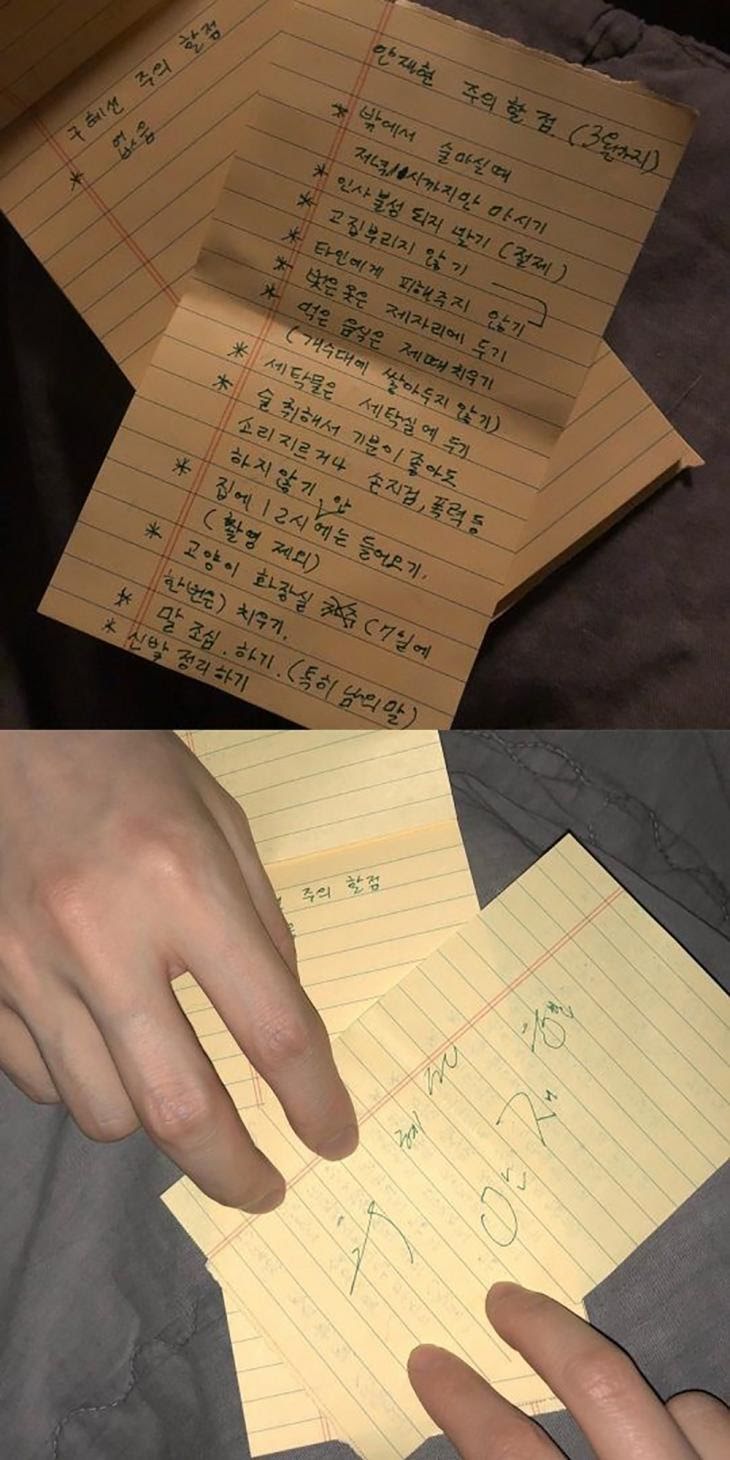 구혜선 주의 할점
* 없음
안재현 주의 할 점 (3월까지)
* 밖에서 술마실때
저녁 시까지만 마시기
* 인사불성 되지 말기 (절제)
* 고집부리지 않기
* 타인에게 피해주지 않기
* 벗은옷은 제자리에 두기
* 먹은 음식은 제때 치우기
(개수대에 쌓아두지 않기)
* 세탁물은 세탁실에 두기
* 술 취해서 기분이 좋아도
소리지르거나 손지검, 폭력 등
하지 않기
* 집에 12시 안에는 들어오기.
(촬영 제외)
* 고양이 화장실 (7일에
한번은) 치우기.
* 말 조심. 하기. (특히 남의 말)
* 신발 정리하기
주의 할점
구 혜 선
안 재 현